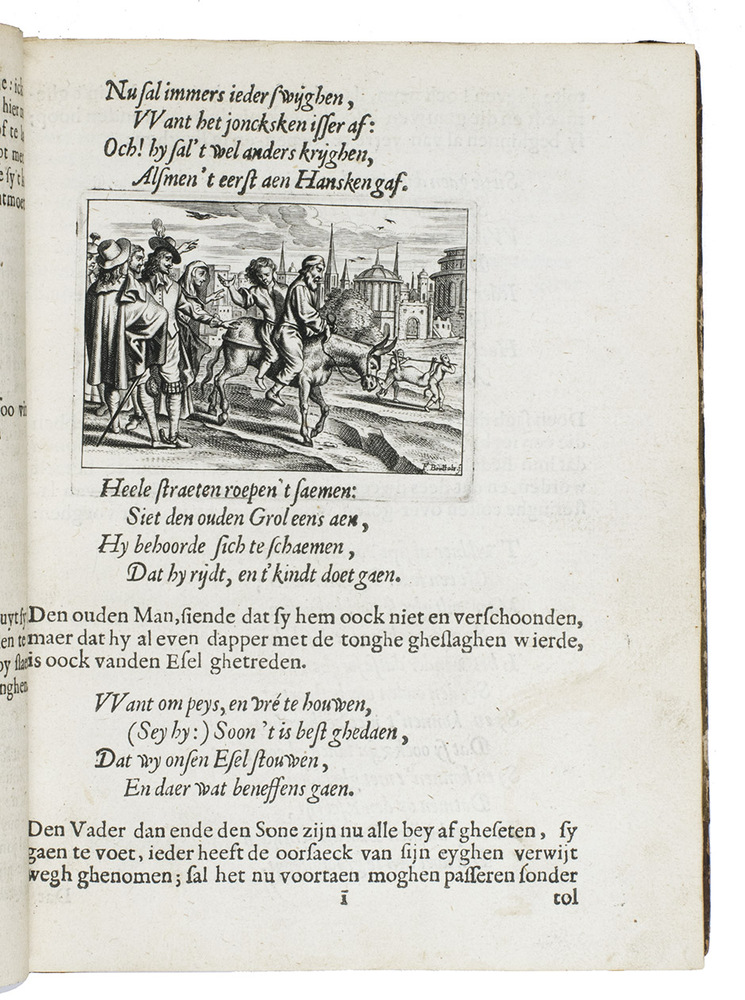 Nu sal immers ieder swijghen,
VVant het joncksken isser af:
Och! hy sal't wel anders krijghen,
Alsmen't eerst aen Hansken gaf.
Heele straeten roepen't saemen:
Siet den ouden Grol eens aen,
Hy behoorde sich te schaemen,
Dat hy rijdt, en t'kindt doet gaen.
Den ouden Man, siende dat sy hem oock niet en verschoonden,
maer dat hy al even dapper met de tonghe gheslaghen wierde,
is oock vanden Esel ghetreden.
VVant om peys, en vré te houwen,
(Sey hy:) Soon 't is best ghedaen,
Dat wy onsen Esel stouwen,
En daer wat beneffens gaen.
Den Vader dan ende den Sone zijn nu alle bey af gheseten, sy
gaen te voet, ieder heeft de oorsaeck van sijn eyghen verwijt
wegh ghenomen; sal het nu voortaen moghen passeren sonder
ī tol